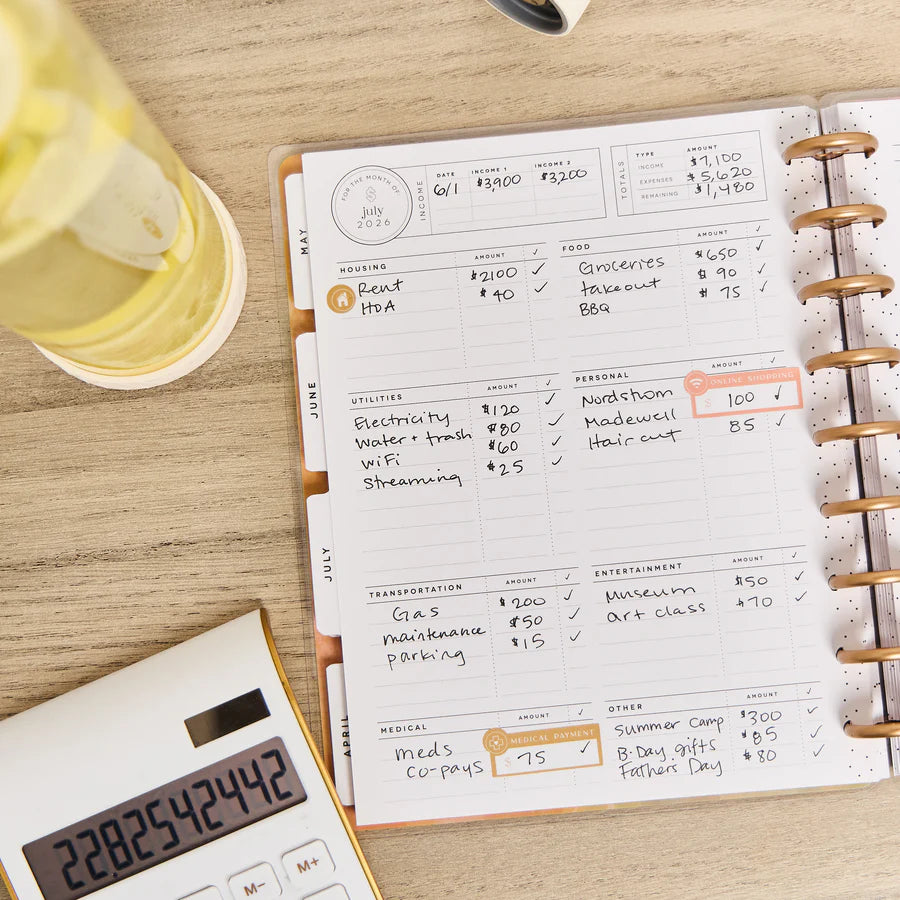 FOR THE MONTH OF
$
july
2026
INCOME
DATE INCOME 1 INCOME 2
6/1 $3,900 $3,200
TOTALS
TYPE AMOUNT
INCOME $7,100
EXPENSES $5,620
REMAINING $1,480
HOUSING AMOUNT ✓
Rent $2100 ✓
HOA $40 ✓
FOOD AMOUNT ✓
Groceries $650 ✓
takeout $90 ✓
BBQ $75 ✓
UTILITIES AMOUNT ✓
Electricity $120 ✓
Water + trash $80 ✓
WiFi $60 ✓
Streaming $25 ✓
PERSONAL AMOUNT ✓
ONLINE SHOPPING
Nordstrom $ 100 ✓
Madewell 85 ✓
Hair cut
TRANSPORTATION AMOUNT ✓
Gas $200 ✓
maintenance $50 ✓
parking $15 ✓
ENTERTAINMENT AMOUNT ✓
Museum $50 ✓
art class $70 ✓
MEDICAL AMOUNT ✓
MEDICAL PAYMENT
meds $ 75 ✓
co-pays
OTHER AMOUNT ✓
Summer Camp $300 ✓
B·Day gifts $85 ✓
Fathers Day $80 ✓
MAY
JUNE
JULY
APRIL
2282542442
M− M+